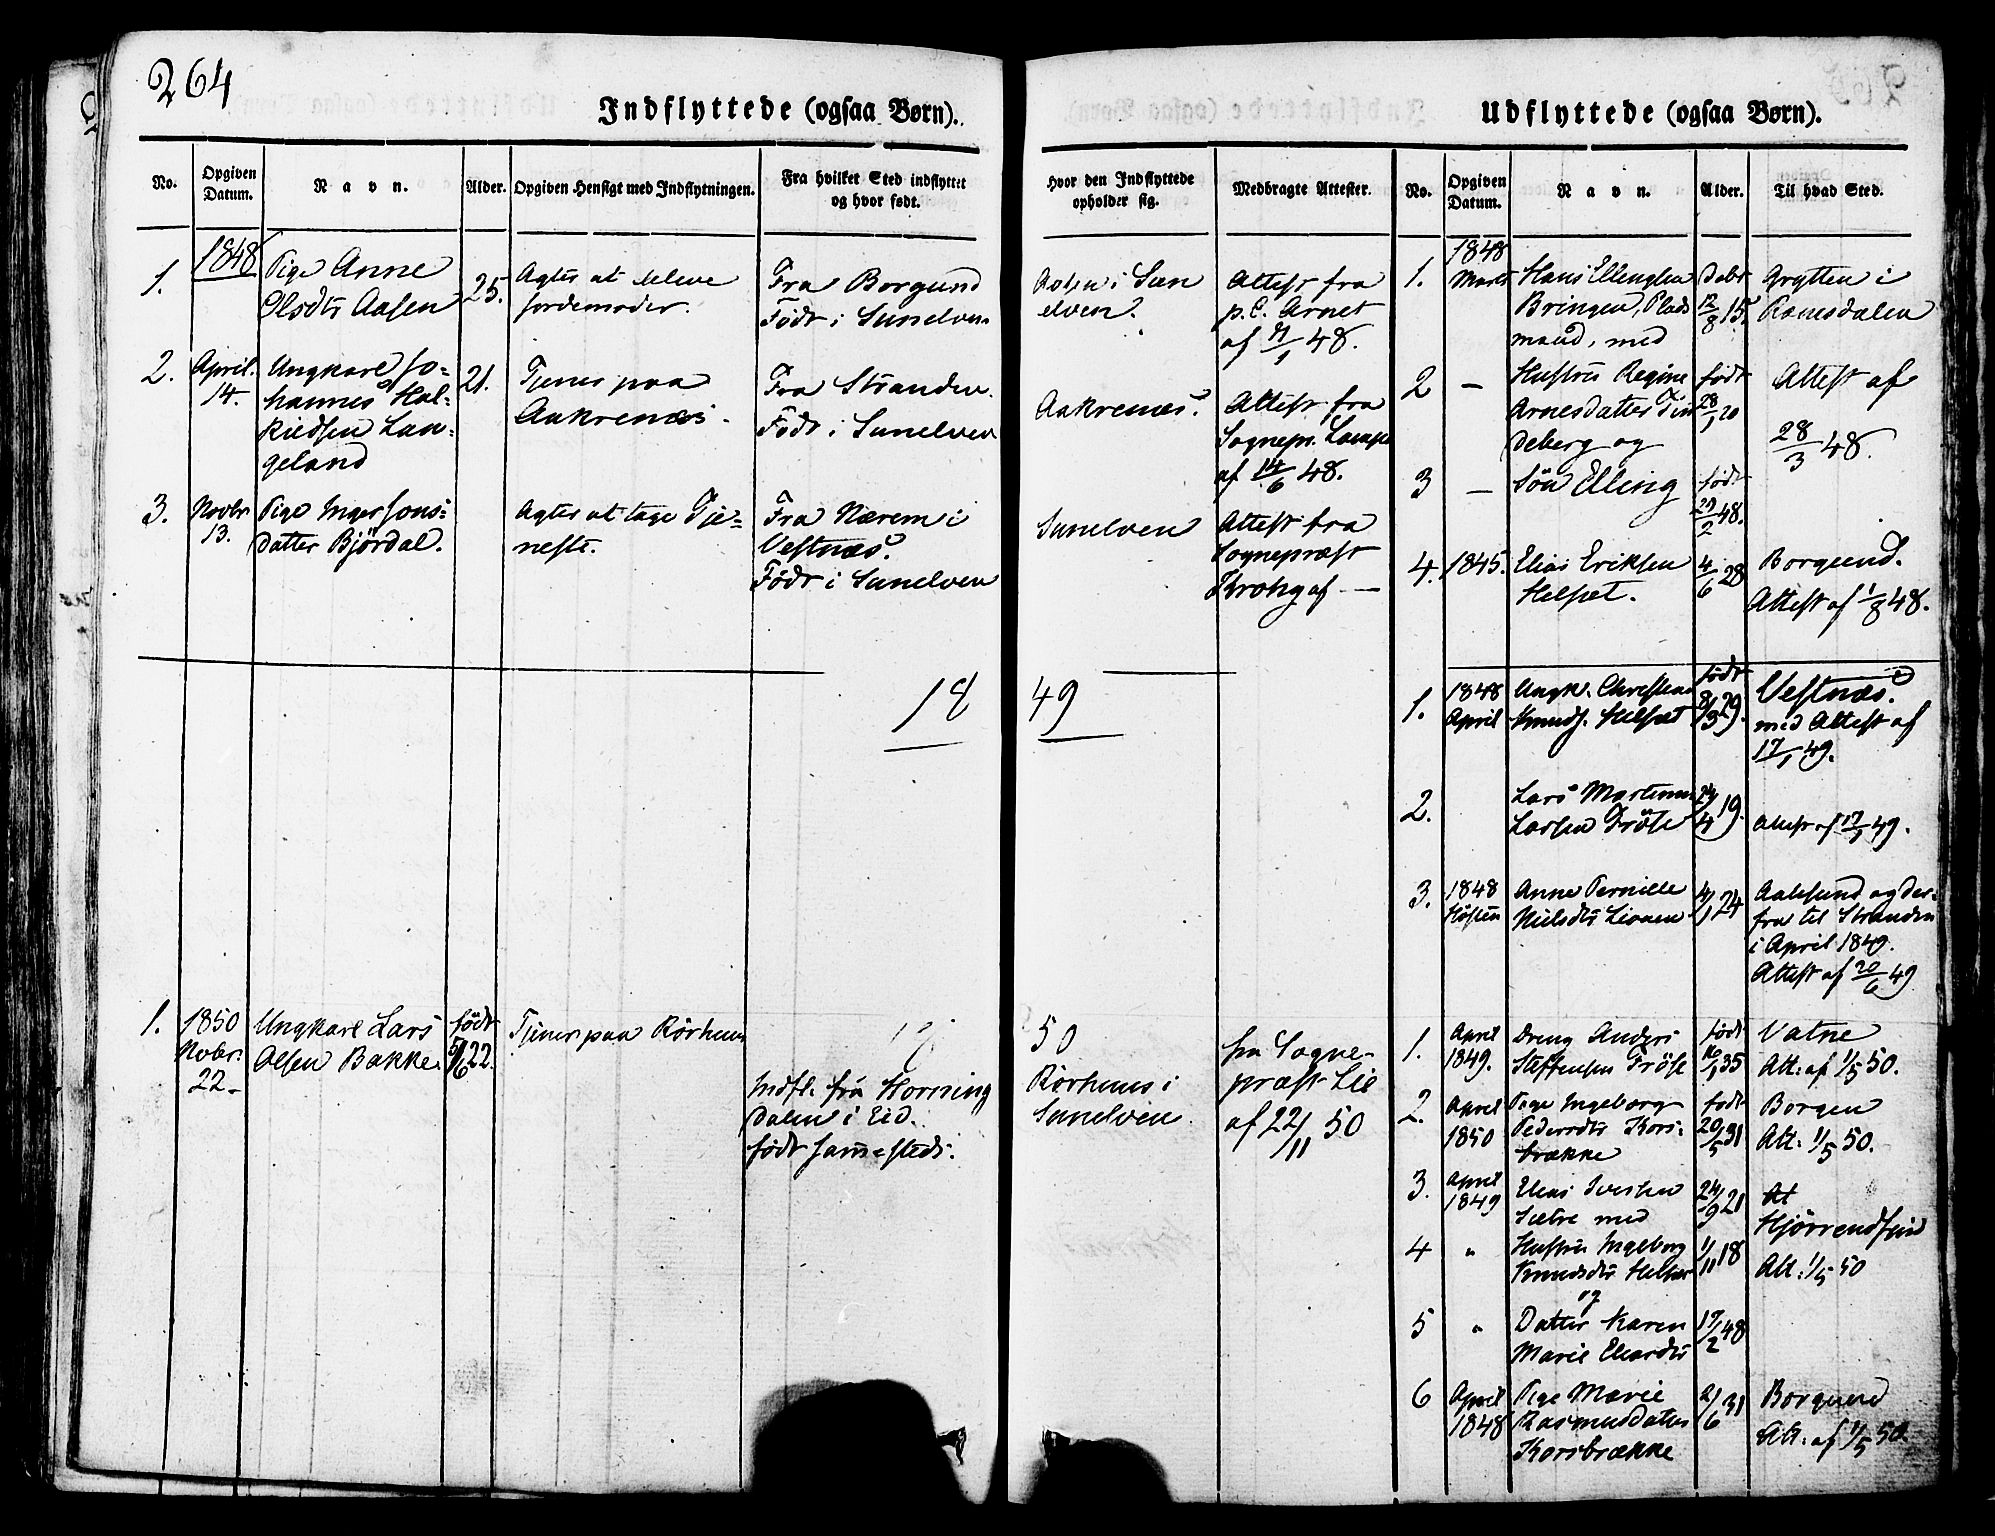 264
Indflyttede (ogsaa Børn).
No.
Opgiven
Datum.
Navn.
Alder.
Opgiven Hensigt med Indflytningen.
Fra hvilket Sted indflyttet
og hvor født.
Hvor den Indflyttede
opholder sig.
Medbragte Attester.
1.
1848
Pige Anne
Olsdtr Aasen
25.
Agter at bleve
Jordemoder.
Fra Borgund
Födt i Sunelven
Aasen i Sun
elven.
Attest fra
p. C. Arnet
af 48.
2.
April.
14.
Ungkarl Jo-
hannes Hal-
kieldsen Lan-
geland
21.
Tjener paa
Aakrenæs.
Fra Stranden.
Födt i Sunelven
Aakrenæs.
Attest fra
Sognepr. Lampe
af 14/6 48.
3.
Novbr
13.
Pige Inger Jons-
datter Bjørdal.
Agter at tage Tje-
neste.
Fra Nærem i
Vestnæs.
Födt i Sunelven
Sunelven
Attest fra
Sognepræst
Krohg af —
18 49
1.
1850
Novbr.
22
Ungkarl Lars
Olsen Bakke
födt
22.
Tjener paa Rörhuus
50
Indfl. fra Horning
dalen i Eid.
födt sammesteds.
Rörhuus i
Sunelven
fra Sogne-
præst Lie
af 22/11 50
Udflyttede (ogsaa Børn).
No.
Opgiven
Datum.
Navn.
Alder.
Til hvad Sted.
1.
1848
Marts
Hans Ellingsen
Bringen, Plads
mand, med
12/8 15.
Grytten i
Romsdalen
2
—
Hustru Regine
Arnesdatter Lin
deberg og
födt
28/1 20
Attest af
28/3 48.
3
—
Sön Elling
födt
48.
4.
1845.
Elias Eriksen
Helset.
4/6 28
Borgund.
Attest af 1/8 48.
1.
1848
April
Ungk. Christen
Knuds. Helset
födt
8/3 29.
Vestnæs.
med Attest af
17/1 49.
2.
Lars Martinus
Larsen Fröse
24/4 19.
Attest af 17/1 49.
3.
1848
Hösten
Anne Pernille
Nielsdtr Lianen
4/1 24
Aalesund og der-
fra til Stranden
i April 1849.
Attest af 20/6 49
1.
April
1849.
Dreng Anders
Steffensen Fröse
födt
35
Vatne
Att: af 1/5 50.
2.
April
1850
Pige Ingeborg
Pedersdtr Kors-
brække
födt
20/5 31
Borgen
Att: 1/5 50.
3.
April
1849
Elias Iversen
Sætre med
24/9 21
Hjörrendfjord
Att: 1/5 50
4
"
Hustru Ingeborg
Knudsdtr Helset
og
1/11 18
5
"
Datter Karen
Marie Eliasdtr
17/2 48
6
April
1848
Pige Marie
Rasmusdatter
Korsbrække
2/6 31
Borgund
Att: af 1/5 50